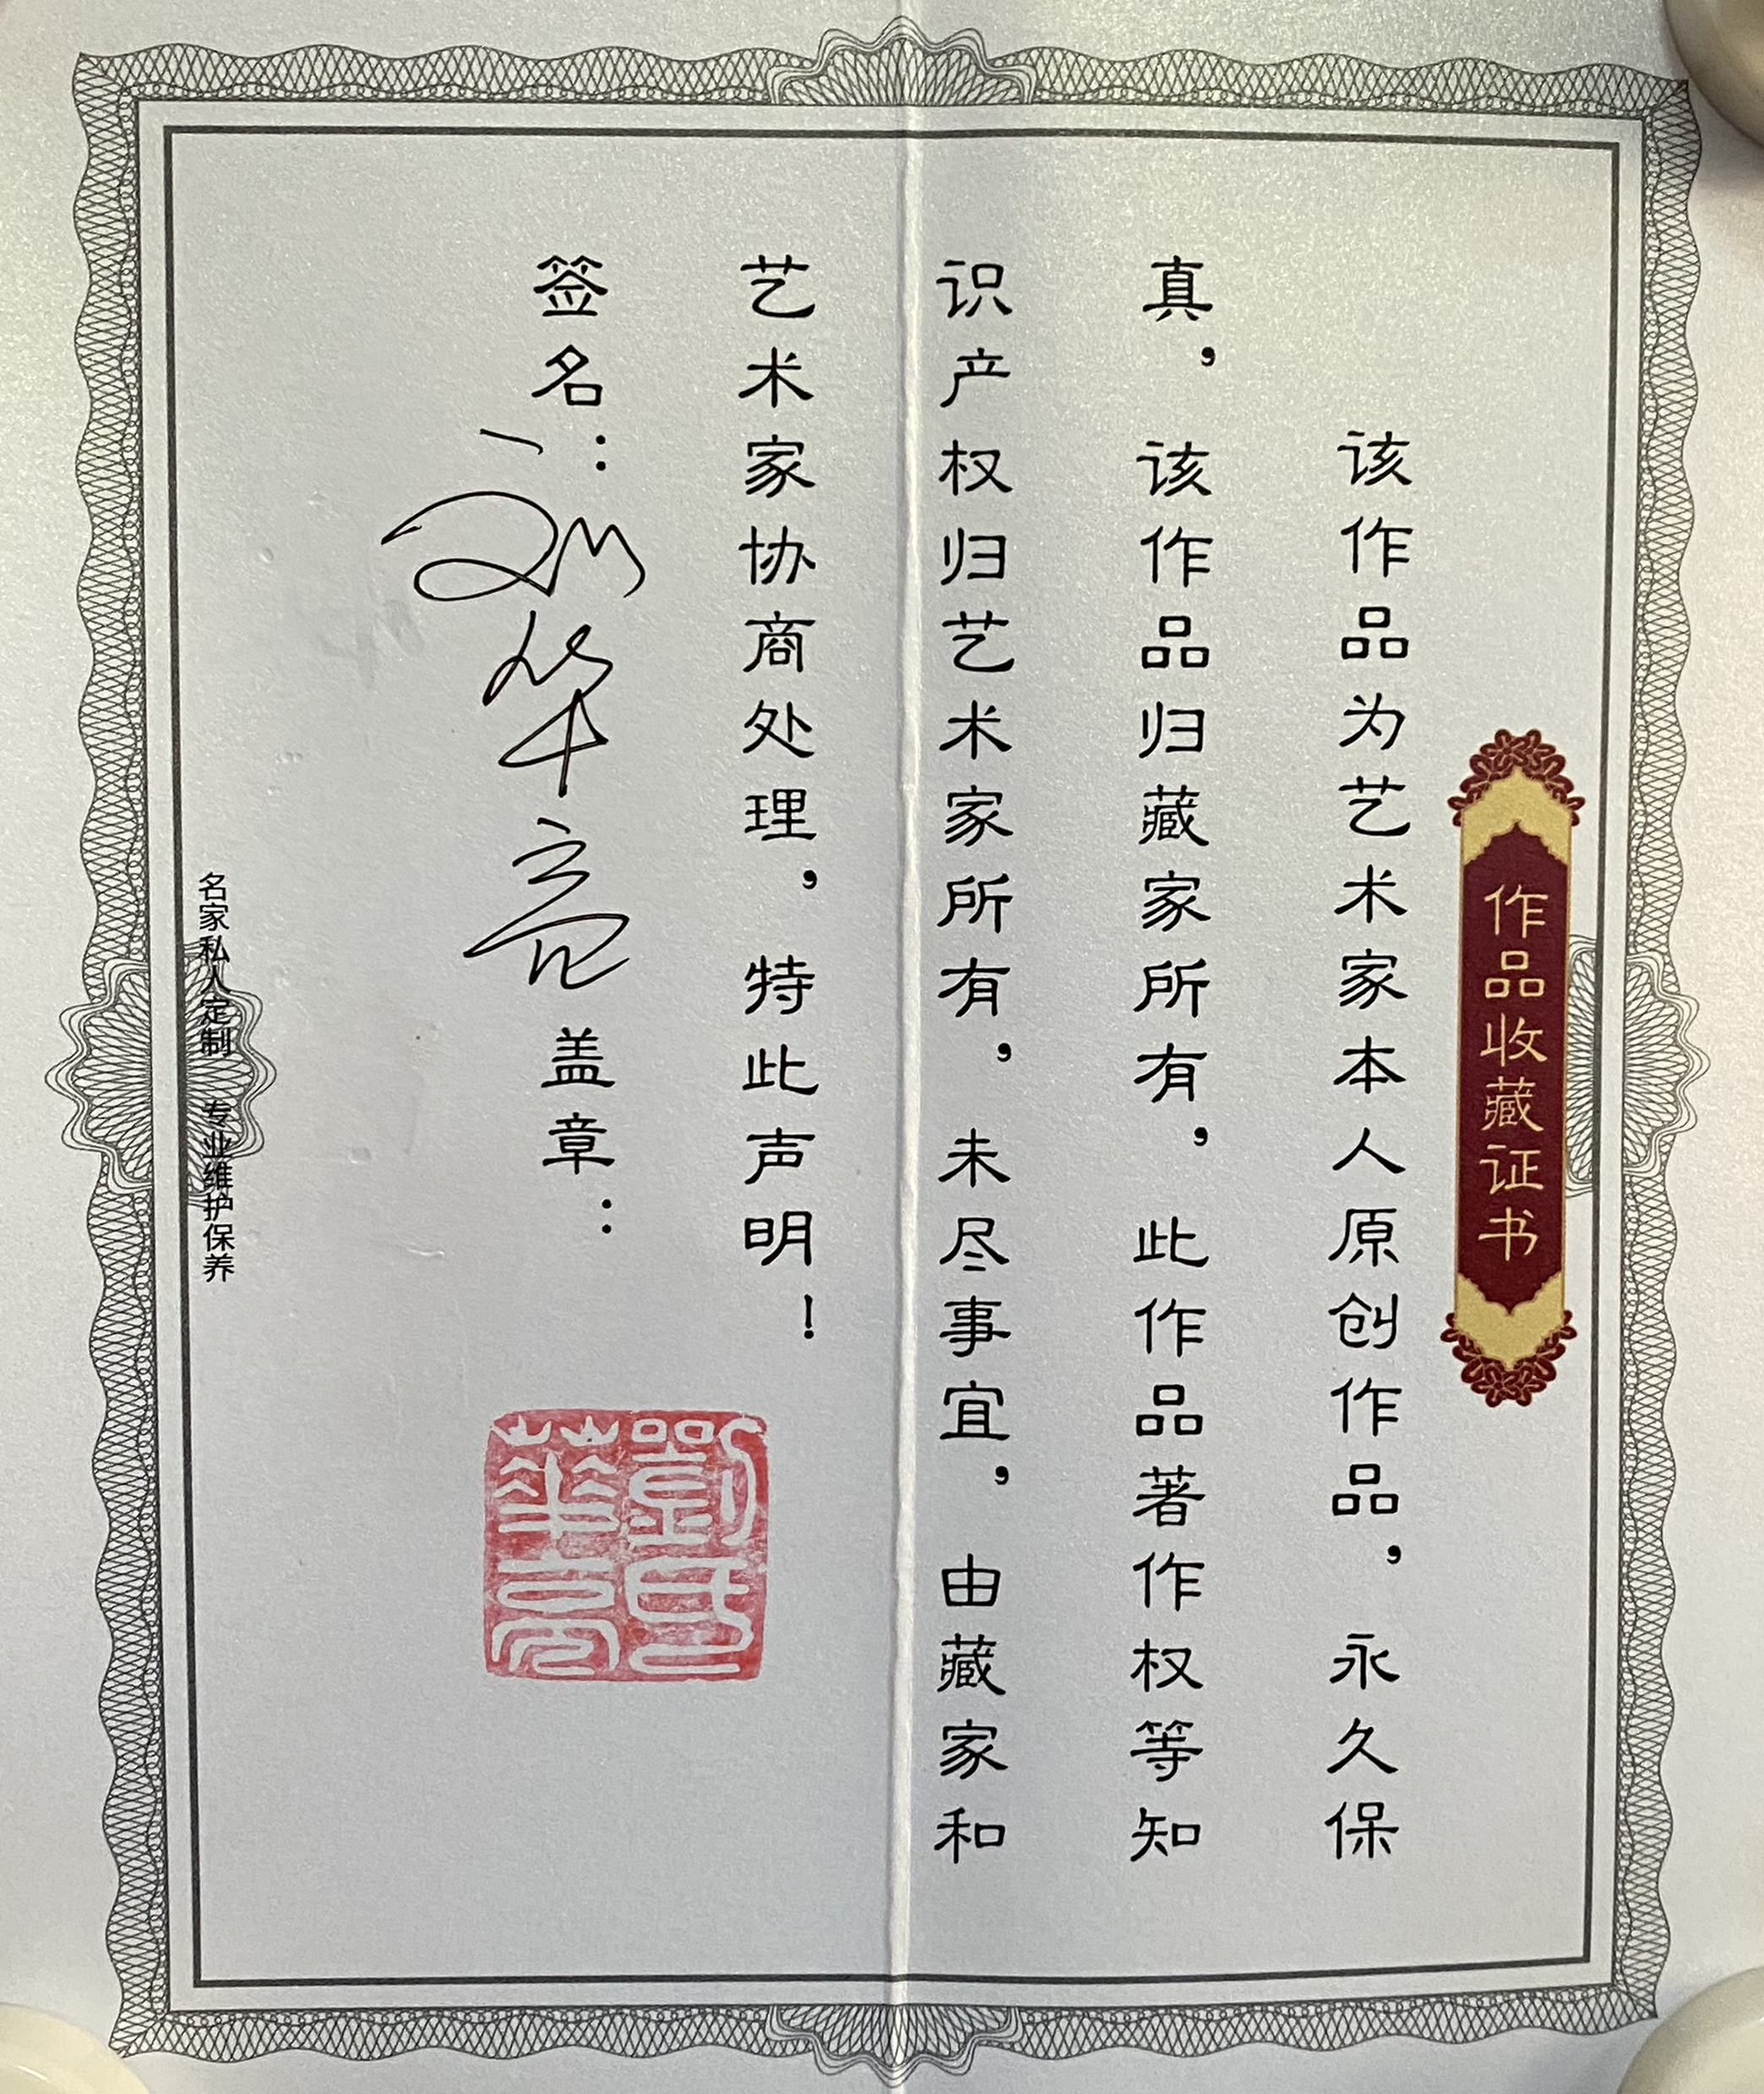 作品收藏证书
该作品为艺术家本人原创作品，永久保
真，该作品归藏家所有，此作品著作权等知
识产权归艺术家所有，未尽事宜，由藏家和
艺术家协商处理，特此声明！
签名：刘华亮盖章：
劉氏華亮
名家私人定制 专业维护保养